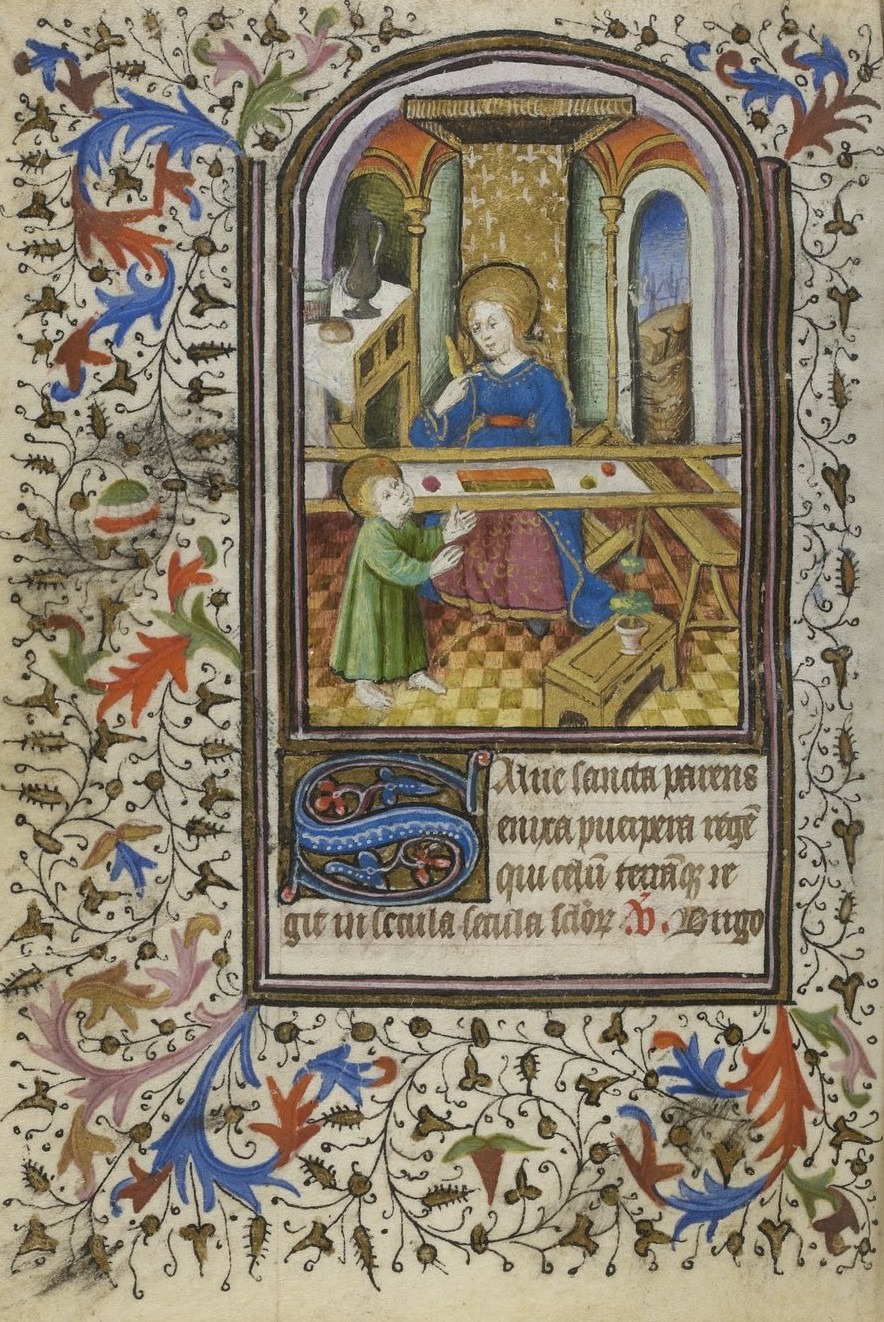 Salue sancta parens
enixa puerpera regē
qui celū terrāqꝫ re
git in secula seculoꝝ. ℣. Virgo